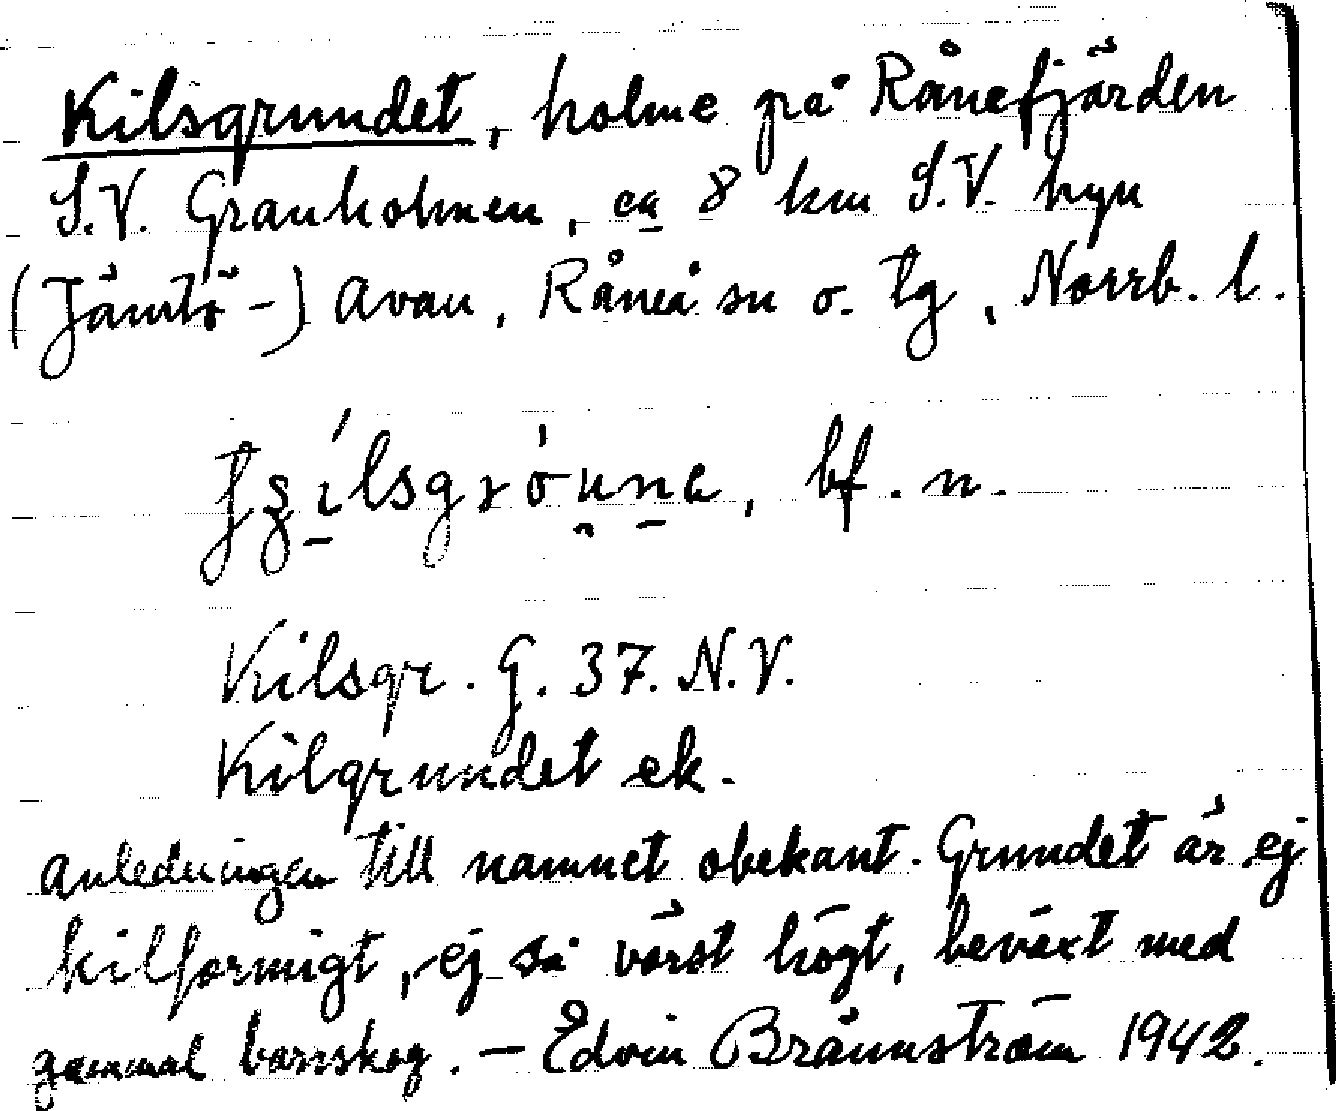 Kilsgrundet, holme på Rånefjärden
S.V. Granholmen, ca 8 km S.V. hpn
(Jämtö-) Avan, Råneå sn o. tg, Norrb. l.
bf. n.
Kilsgr. G. 37. N.V.
Kilgrundet ek.
Anledningen till namnet obekant. Grundet är ej
kilformigt, ej så värst högt, beväxt med
gammal barrskog. – Edvin Brännström 1942.